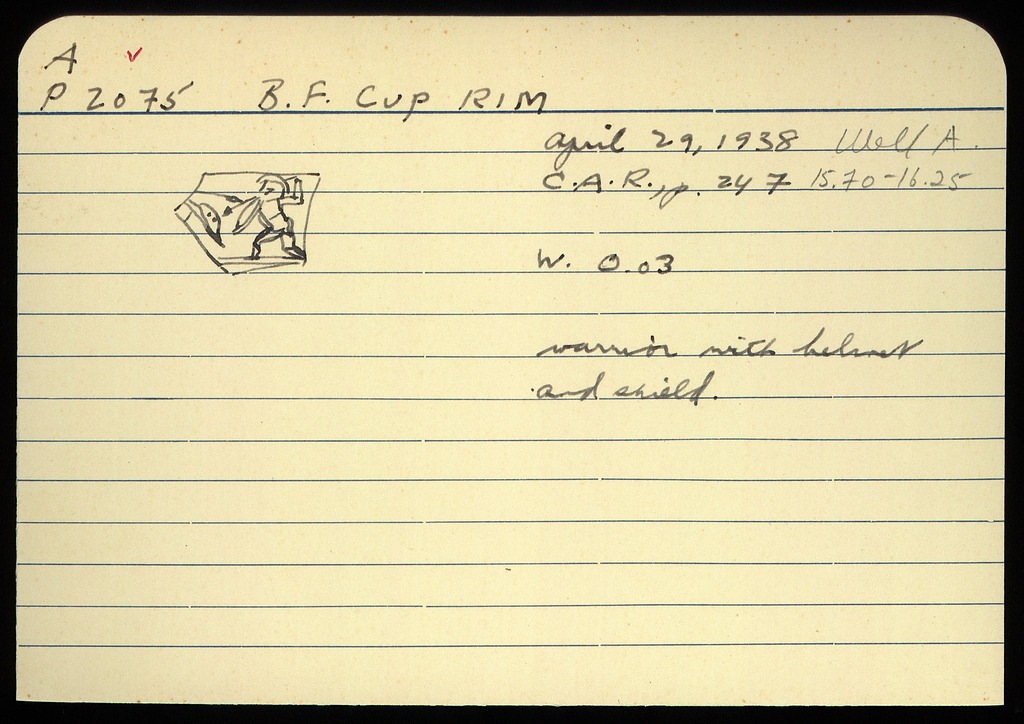 A v
P 2075 B.F. CUP RIM
April 29, 1938 Well A.
C.A.R., p. 247 15.70-16.25
W. 0.03
warrior with helmet
and shield.